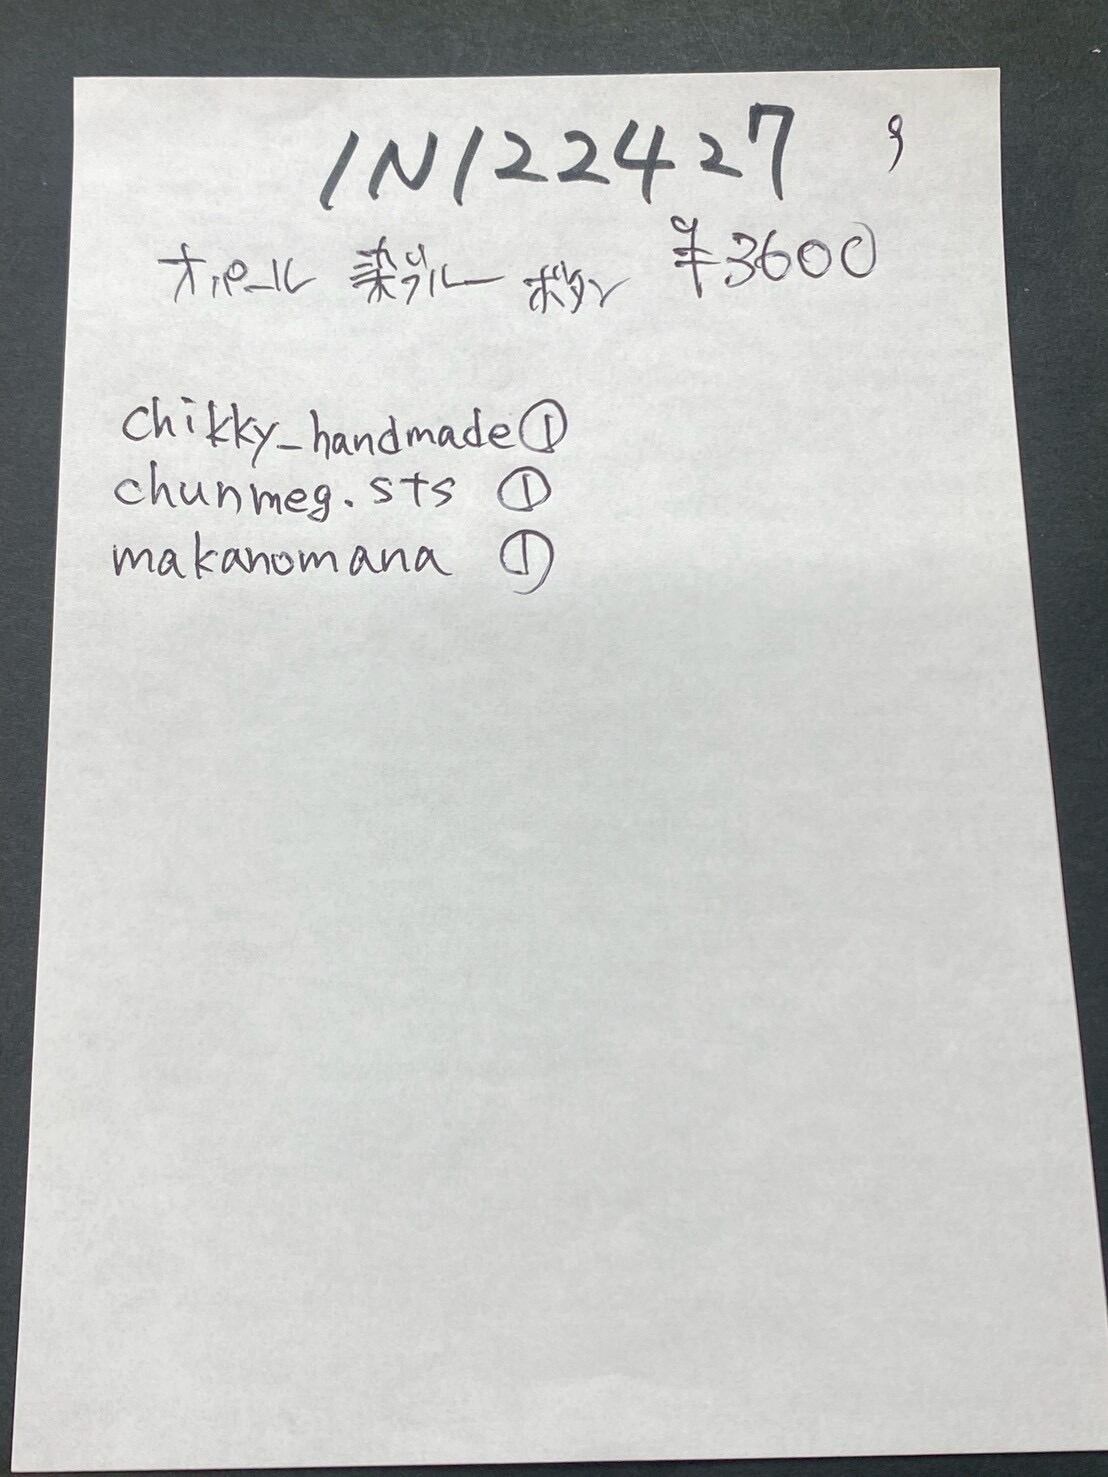 IN122427 9
オパール 染ブルー ボタン ¥3600
chikky_handmade①
chunmeg.sts ①
makanomana ①